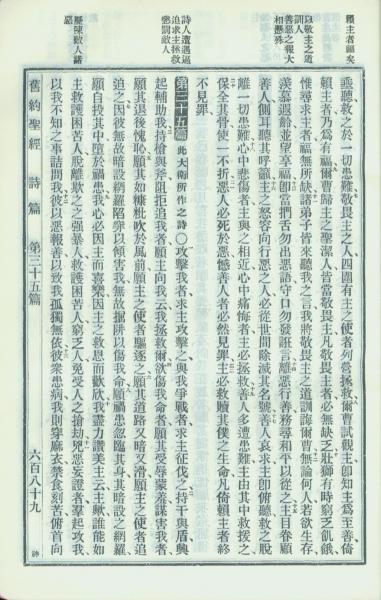 賴主者福矣
以敬主之道
訓人
善惡之報大
相懸殊
詩人遭遇逼
迫求主拯救
懲罰敵人
歷陳敵人諸
惡
垂聽救之於一切患難敬畏主之人四圍有主之使者列營拯救爾曹試觀主卽知主爲至善倚
賴主者乃爲有福爾曹歸主之聖潔人皆當敬畏主凡敬畏主者必無缺乏壯獅有時窮乏飢餓
惟尋求主者福無所缺諸弟子皆來聽我之言我將敬畏主之道訓誨爾曹無論何人若欲生存
羨慕遐齡並望享福卽當捫舌勿出惡語守口勿發誑言離惡行善務尋和平以從之主目眷顧
善人側耳聽其呼籲主之怒容向行惡之人必從世間除滅其名號善人哀求主卽俯聽救之脫
離一切患難心中悲傷者主與之相近心中痛悔者主必拯救善人多遭患難主由其中救援之
保全其骨使一不折惡人必死於惡憾善人者必然見罪主必救贖其僕之生命凡倚賴主者終
不見罪
第三十五篇 此大衞所作之詩〇攻擊我者求主攻擊之與我爭戰者求主征伐之持干與盾興
起輔助我持槍與斧阻拒追我者願主向我云我拯救爾欲傷我命者願其受辱蒙羞謀害我者
願其退後愧恥願其如糠粃吹於風前願主之使者驅逐之願其道路又暗又滑願主之使者追
迫之因彼無故暗設網羅陷穽以傾害我無故掘阱以傷我命願禍患忽臨其身其暗設之網羅
願自投其中墮於禍患我心必因主而喜樂因主之救恩而歡欣我盡力讚美主云主歟誰能如
主救護困苦人脫離欺之之强暴人救護困苦人窮乏人免受人之搶劫兇惡妄證者羣起攻我
以我不知之事詰問我彼以惡報善以致我孤獨無依彼衆患病我則穿麻衣禁食刻苦俯首向
舊約聖經 詩篇 第三十五篇 六百八十九